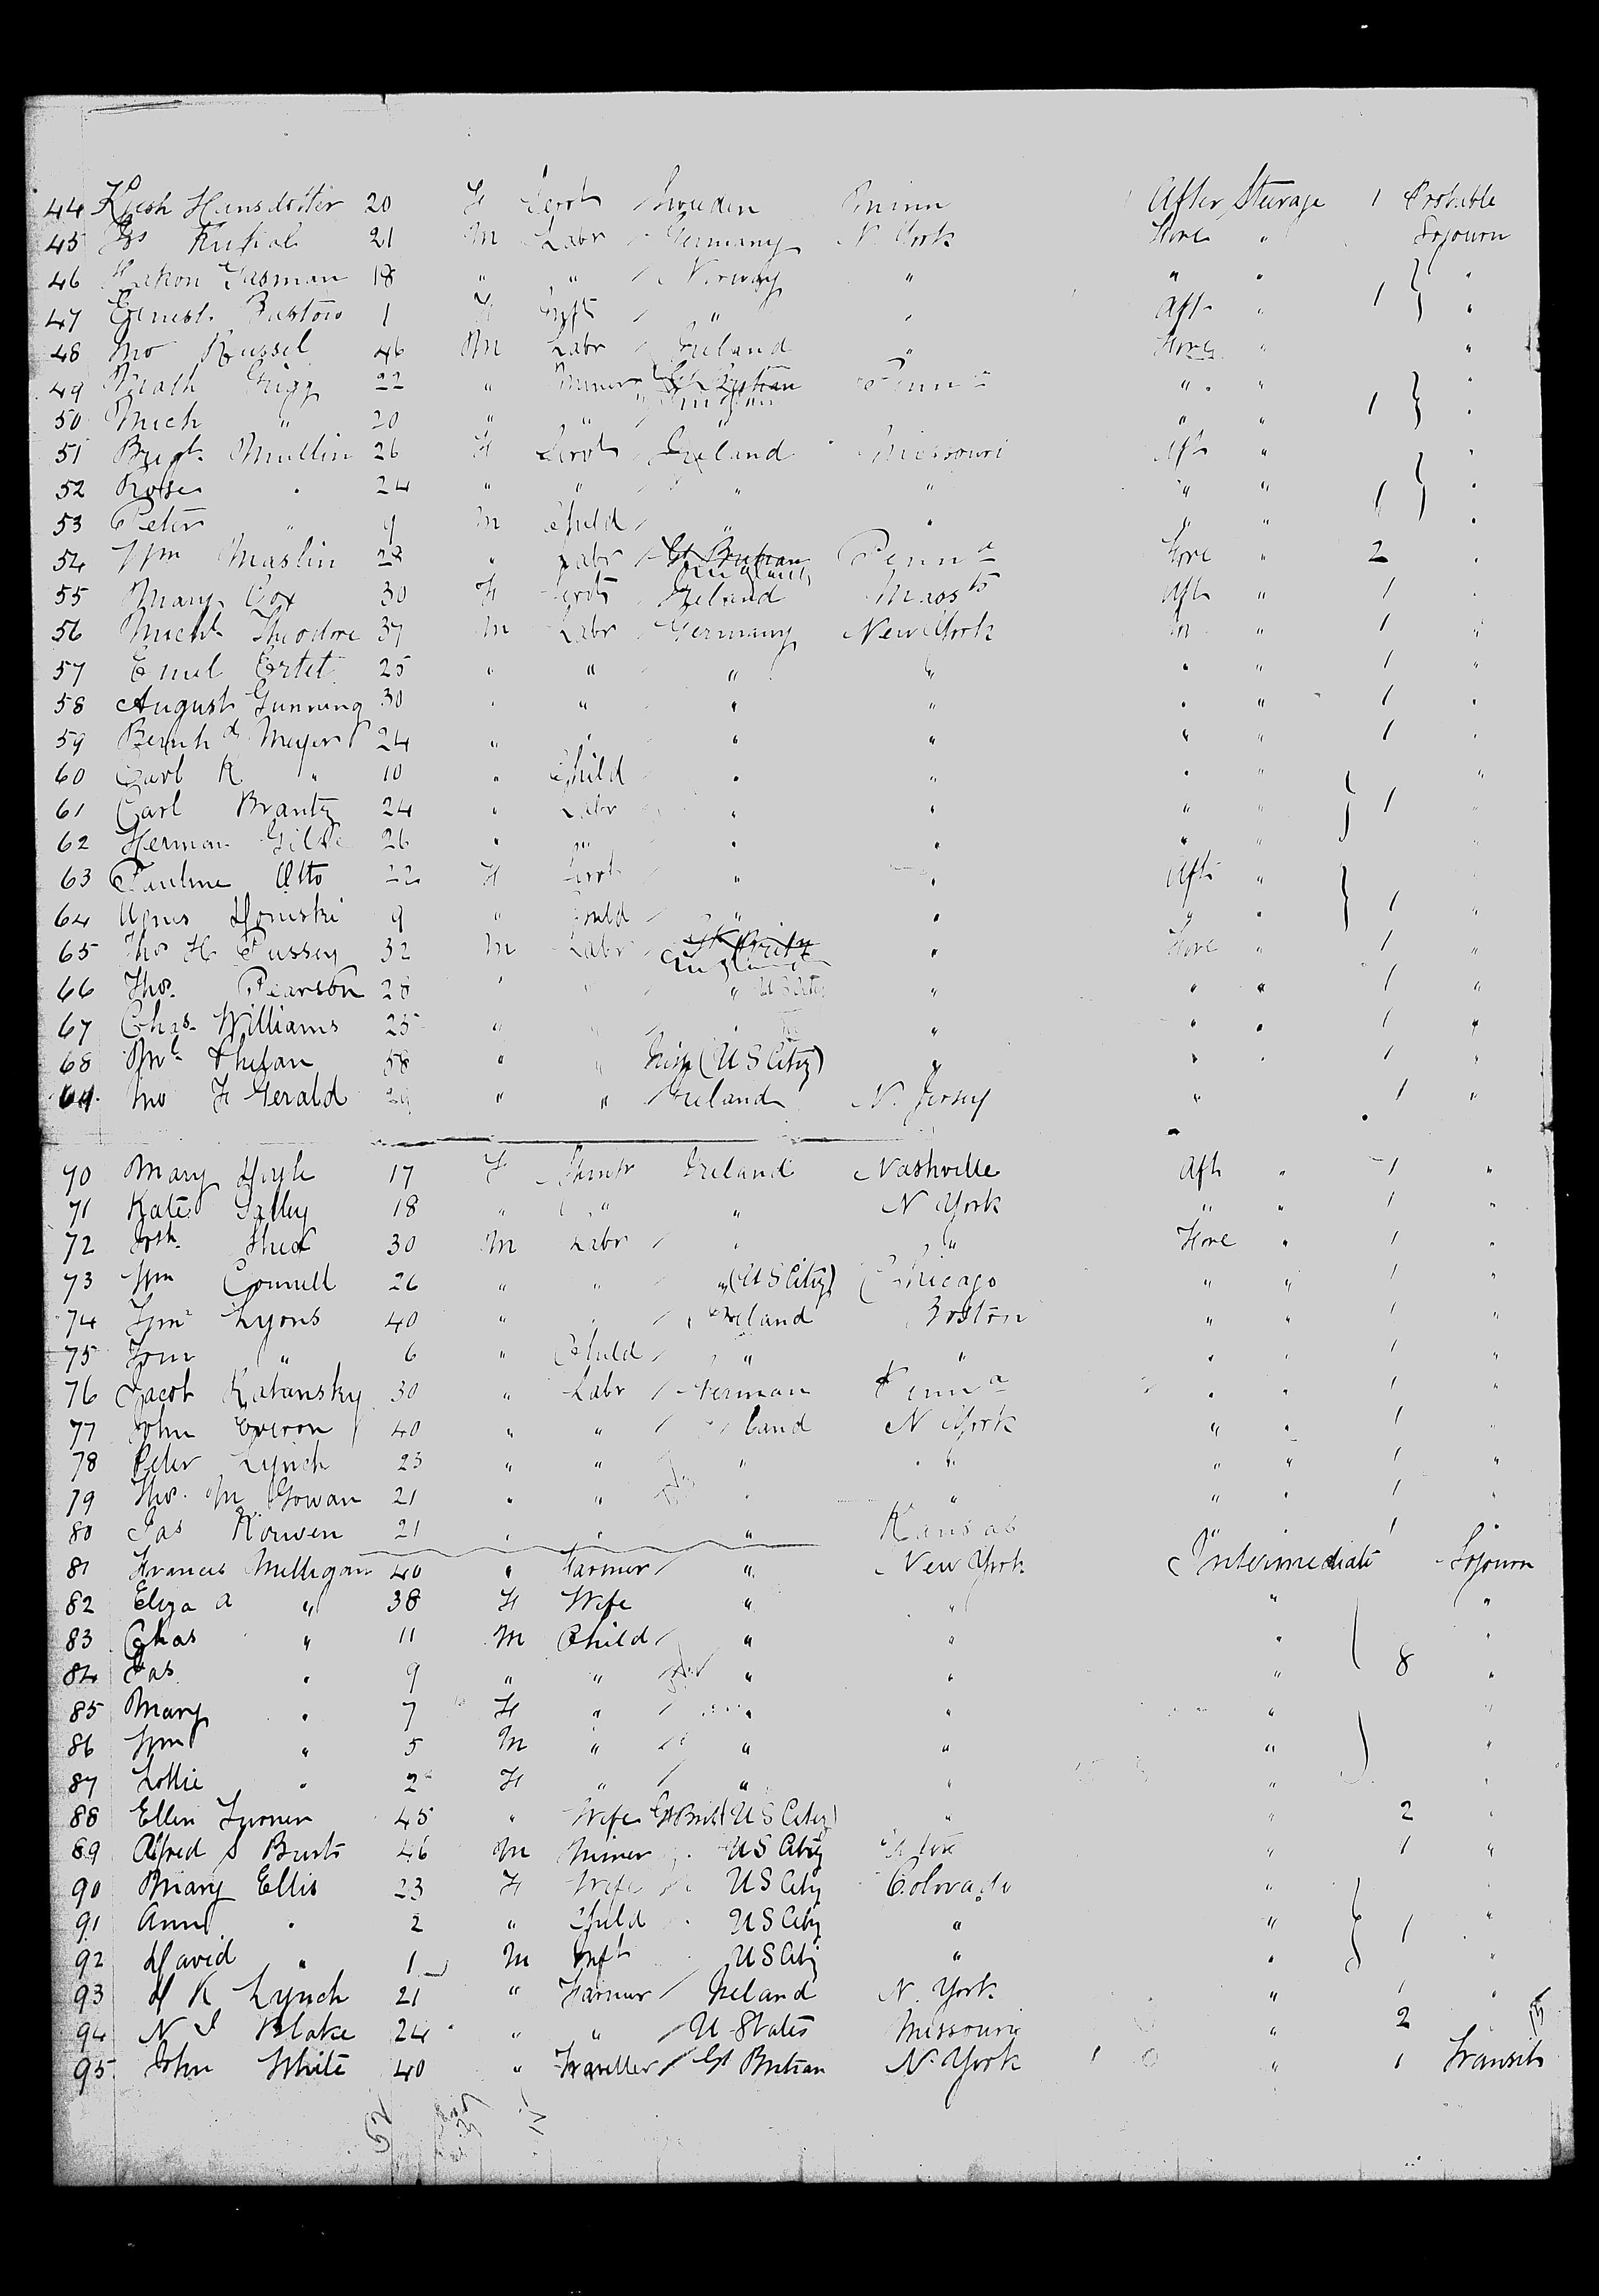 44 Hansdotter 20 F Servt Sweden Minn After Steerage 1 Probable
45 21 M Labr Germany N. York Fore " Sojourn
46 Hakon Gasman 18 " " Norway " " " "
47 Ernest 1 Inft " " Aft " 1 "
48 Jno Russel 46 M Labr Ireland " Fore " "
49 Grigg 22 " Miner Gt Britian England Penna " " "
50 Mich " 20 " " " " " 1 "
51 Brigt Mullin 26 F Servt Ireland Missouri Aft " "
52 Rose " 24 " " " " " " 1 "
53 Peter " 9 M Child " " " " "
54 Wm Maslin " Labr Gt Britian England Penna Fore " 2 "
55 Mary Cox 30 F Servt Ireland Massts Aft " 1 "
56 Michl Theodore 37 M Labr Germany New York " 1 "
57 Emil Ertet 25 " " " " " " 1 "
58 August Gunning 30 " " " " " " 1 "
59 Bernhd Meyer 24 " " " " " " 1 "
60 Carl K " 10 " Child " " " " "
61 Carl Brantz 24 " Labr " " " " 1 "
62 Herman 26 " " " " " " "
63 Pauline Otto 22 F Servt " " Aft " "
64 Agnes 9 " Child " " " " 1 "
65 Thos H Pussey 32 M Labr Gt Britn England " Fore " 1 "
66 Thos. Pearson 28 " " " U S City " " " 1 "
67 Chas. Williams 25 " " " " " " 1 "
68 Ml Phelan 58 " " Irish (U S City) " " " 1 "
69 Jno F Gerald 29 " " Ireland N. Jersey " 1 "
70 Mary 17 F Ireland Nashville Aft " 1 "
71 Kate 18 " " " N York " " 1 "
72 Shea 30 M Labr " " Fore " 1 "
73 Wm Connell 26 " " " (U S City) Chicago " " 1 "
74 Lyons 40 " " Ireland Boston " " 1 "
75 " 6 " Child " " " " 1 "
76 Jacob Katansky 30 " Labr German Penna " " 1 "
77 John 40 " " N York " " 1 "
78 Peter Lynch 23 " " " " " " 1 "
79 Thos. Mc Gowan 21 " " " " " " 1 "
80 Jas 21 " " " Kansas " " 1 "
81 Francis Milligan 40 " Farmer " New York Intermediate Sojourn
82 Eliza A " 38 F Wife " " " "
83 Chas " 11 M Child " " " "
84 Jas " 9 " " " " " 8 "
85 Mary " 7 F " " " " "
86 Wm " 5 M " " " " "
87 Lottie " 2 F " " " " "
88 Ellen Turner 45 " Wife Gt Brit (U S City) " " 2 "
89 Alfred S 46 M Miner U S City " 1 "
90 Mary Ellis 23 F Wife U S City Colorado " "
91 Ann " 2 " Child U S City " " 1 "
92 David " 1 M Inft U S City " " "
93 K Lynch 21 " Farmer Ireland N. York " 1 "
94 N Blake 24 " " U States Missouri " 2
95 John White 40 " Traveller Gt Britian N. York " 1 Transit